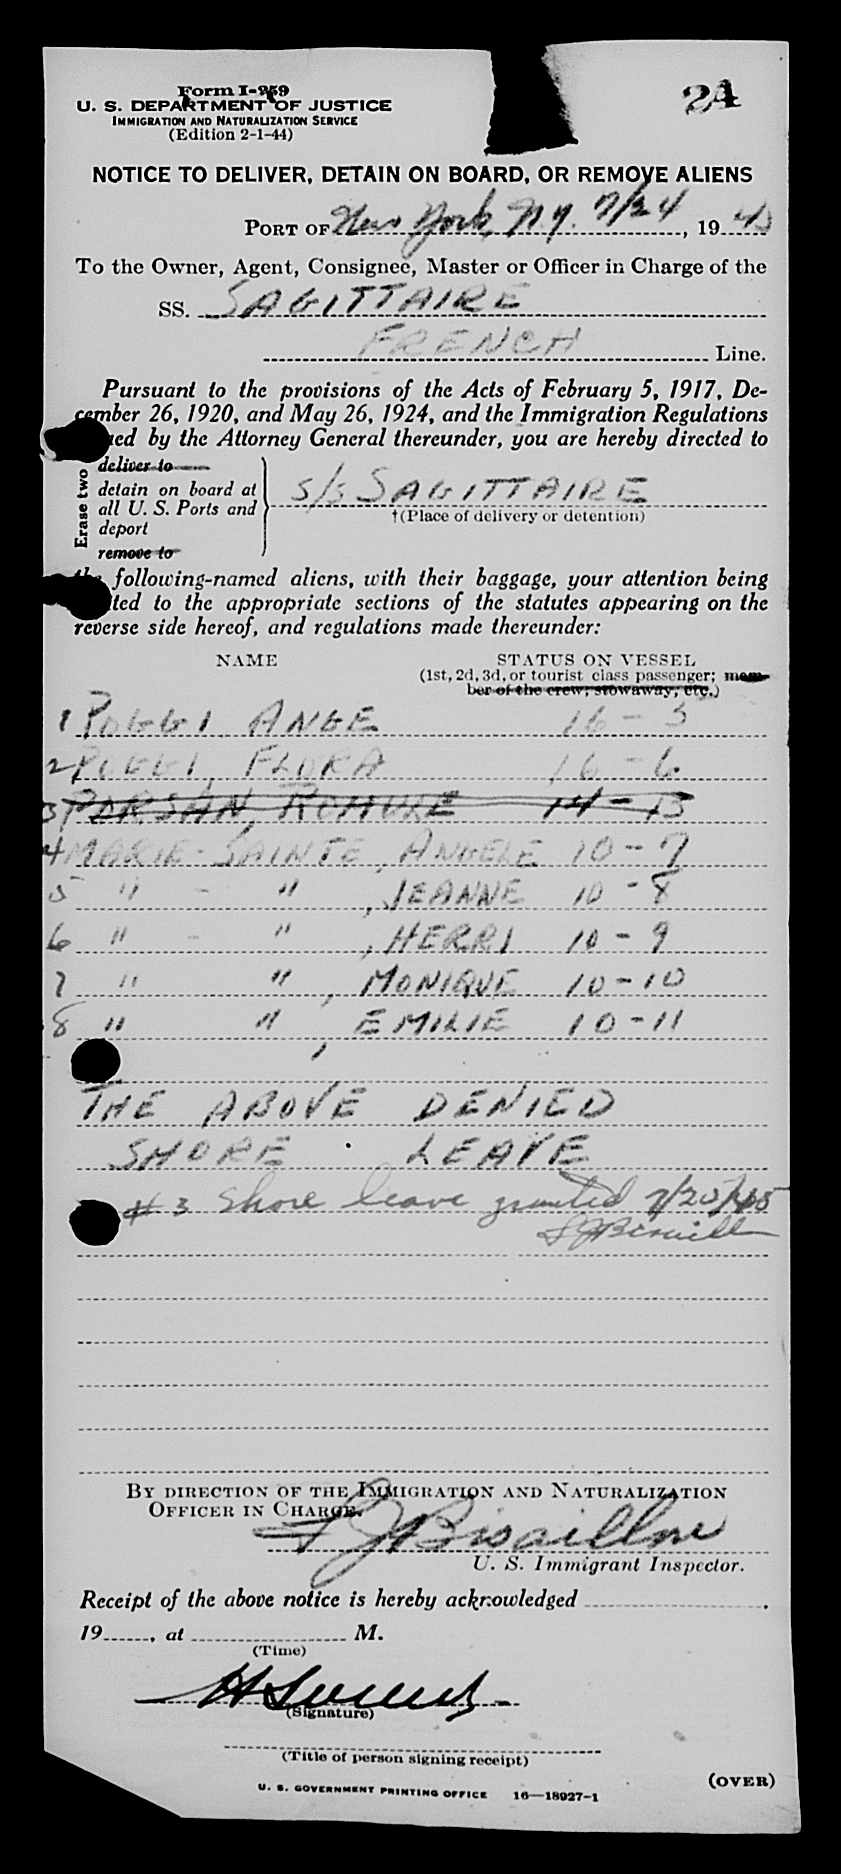 Form I-259
U. S. DEPARTMENT OF JUSTICE
IMMIGRATION AND NATURALIZATION SERVICE
(Edition 2-1-44)
2A
NOTICE TO DELIVER, DETAIN ON BOARD, OR REMOVE ALIENS
PORT OF New York, N.Y. 7/24, 1945
To the Owner, Agent, Consignee, Master or Officer in Charge of the
SS. SAGITTAIRE
FRENCH Line.
Pursuant to the provisions of the Acts of February 5, 1917, De-
cember 26, 1920, and May 26, 1924, and the Immigration Regulations
ued by the Attorney General thereunder, you are hereby directed to
Erase two
deliver to
detain on board at
all U. S. Ports and
deport
remove to
S/S SAGITTAIRE
†(Place of delivery or detention)
the following-named aliens, with their baggage, your attention being
ited to the appropriate sections of the statutes appearing on the
reverse side hereof, and regulations made thereunder:
NAME STATUS ON VESSEL
(1st, 2d, 3d, or tourist class passenger; mem-
ber of the crew; stowaway, etc.)
1 POGGI, ANGE 16 - 5
2 POGGI, FLORA 16 - 6
3 PARSAN, ROMULE 14 - 13
4 MARIE-SAINTE, ANGELE 10 - 7
5 " - " , JEANNE 10 - 8
6 " - " , HERRI 10 - 9
7 " " , MONIQUE 10 - 10
8 " " , EMILIE 10 - 11
THE ABOVE DENIED
SHORE LEAVE
# 3 Shore leave granted 7/25/45
BY DIRECTION OF THE IMMIGRATION AND NATURALIZATION
OFFICER IN CHARGE.
U. S. Immigrant Inspector.
Receipt of the above notice is hereby acknowledged
19, at M.
(Time)
(Signature)
(Title of person signing receipt)
(OVER)
U. S. GOVERNMENT PRINTING OFFICE 16—18927-1